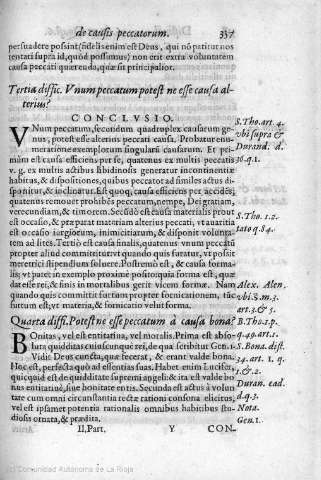 de causis peccatorum. 337
persuadere possint (fidelis enim est Deus, qui nō patitur nos
tentari supra id, quod possumus) non erit extra voluntatem
causa peccati quærenda, quæ sit principalior.
Tertia diffic. Vnum peccatum potest ne esse causa al-
terius?
CONCLVSIO.
VNum peccatum, secundum quadruplex causarum ge-
nus, potest esse alterius peccati causa. Probatur enu-
meratione exemplorum singularū causarum. Et pri-
mùm est causa efficiens per se, quatenus ex multis peccatis
v. g. ex multis actibus libidinosis generatur incontinentiæ
habitus, & dispositiones, quibus peccator ad similes actus di-
sponitur, & inclinatur. Est quoq; causa efficiens per accidēs,
quatenus remouet prohibēs peccatum, nempe, Dei gratiam,
verecundiam, & timorem. Secūdò est causa materialis prout
est occasio, & præparat materiam alterius peccati: vt auaritia
est occasio iurgiorum, inimicitiarum, & disponit volunta-
tem ad lites. Tertiò est causa finalis, quatenus vnum peccatū
propter aliud committitur: vt quando quis furatur, vt possit
meretrici stipendium soluere. Postremò est, & causa forma-
lis, vt patet in exemplo proximè posito: quia forma est, quæ
dat esse rei, & finis in moralibus gerit vicem formæ. Nam
quando quis committit furtum propter fornicationem, fur-
tum est, vt materia, & fornicatio velut forma.
Quarta diffi. Potest ne esse peccatum à causa bona?
BOnitas, vel est entitatiua, vel moralis. Prima est abso-
luta quidditas cuiuscunque rei, de qua scribitur Gen. 1.
Vidit Deus cuncta, quæ fecerat, & erant valde bona.
Hoc est, perfecta quò ad essentias suas. Habet enim Lucifer,
quicquid est de quidditate supremi angeli: & ita est valde bo
nus entitatiuè, siue bonitate entis. Secunda est actus à volun
tate cum omni circunstantia rectæ rationi consona elicitus,
vel est ipsamet potentia rationalis omnibus habitibus stu-
diosis ornata, & prædita.
II. Part. Y CON-
S. Tho. art. 4.
vbi supra &
Durand. d.
36. q. 1.
S. Tho. 1. 2.
q. 84.
Alex. Alen.
art. 3. & 5.
B. Tho. 1. p.
S. Bona. dist.
34. art. 1. q.
1. & 2.
Duran. ead.
d. q. 3.
Nota.
Gen. 1.
(c) Comunidad Autónoma de La Rioja